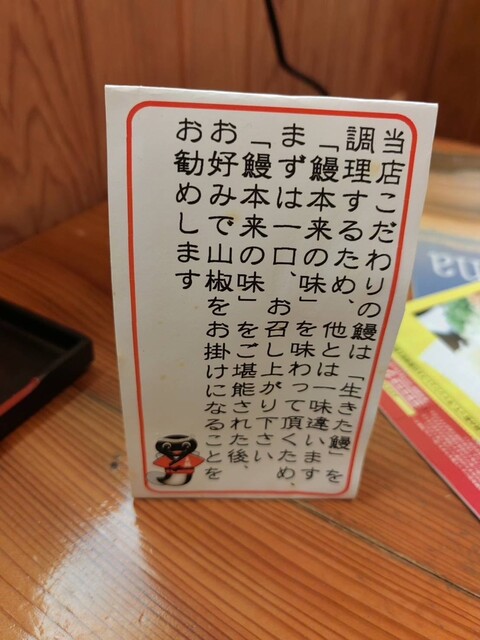 当店こだわりの鰻は「生きた鰻」を
調理するため、他とは一味違います
「鰻本来の味」を味わって頂くため、
まずは一口、お召し上がり下さい
「鰻本来の味」をご堪能された後、
お好みで山椒をお掛けになることを
お勧めします
na